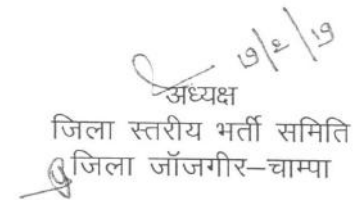 ७/२/१७
अध्यक्ष
जिला स्तरीय भर्ती समिति
जिला जॉजगीर–चाम्पा